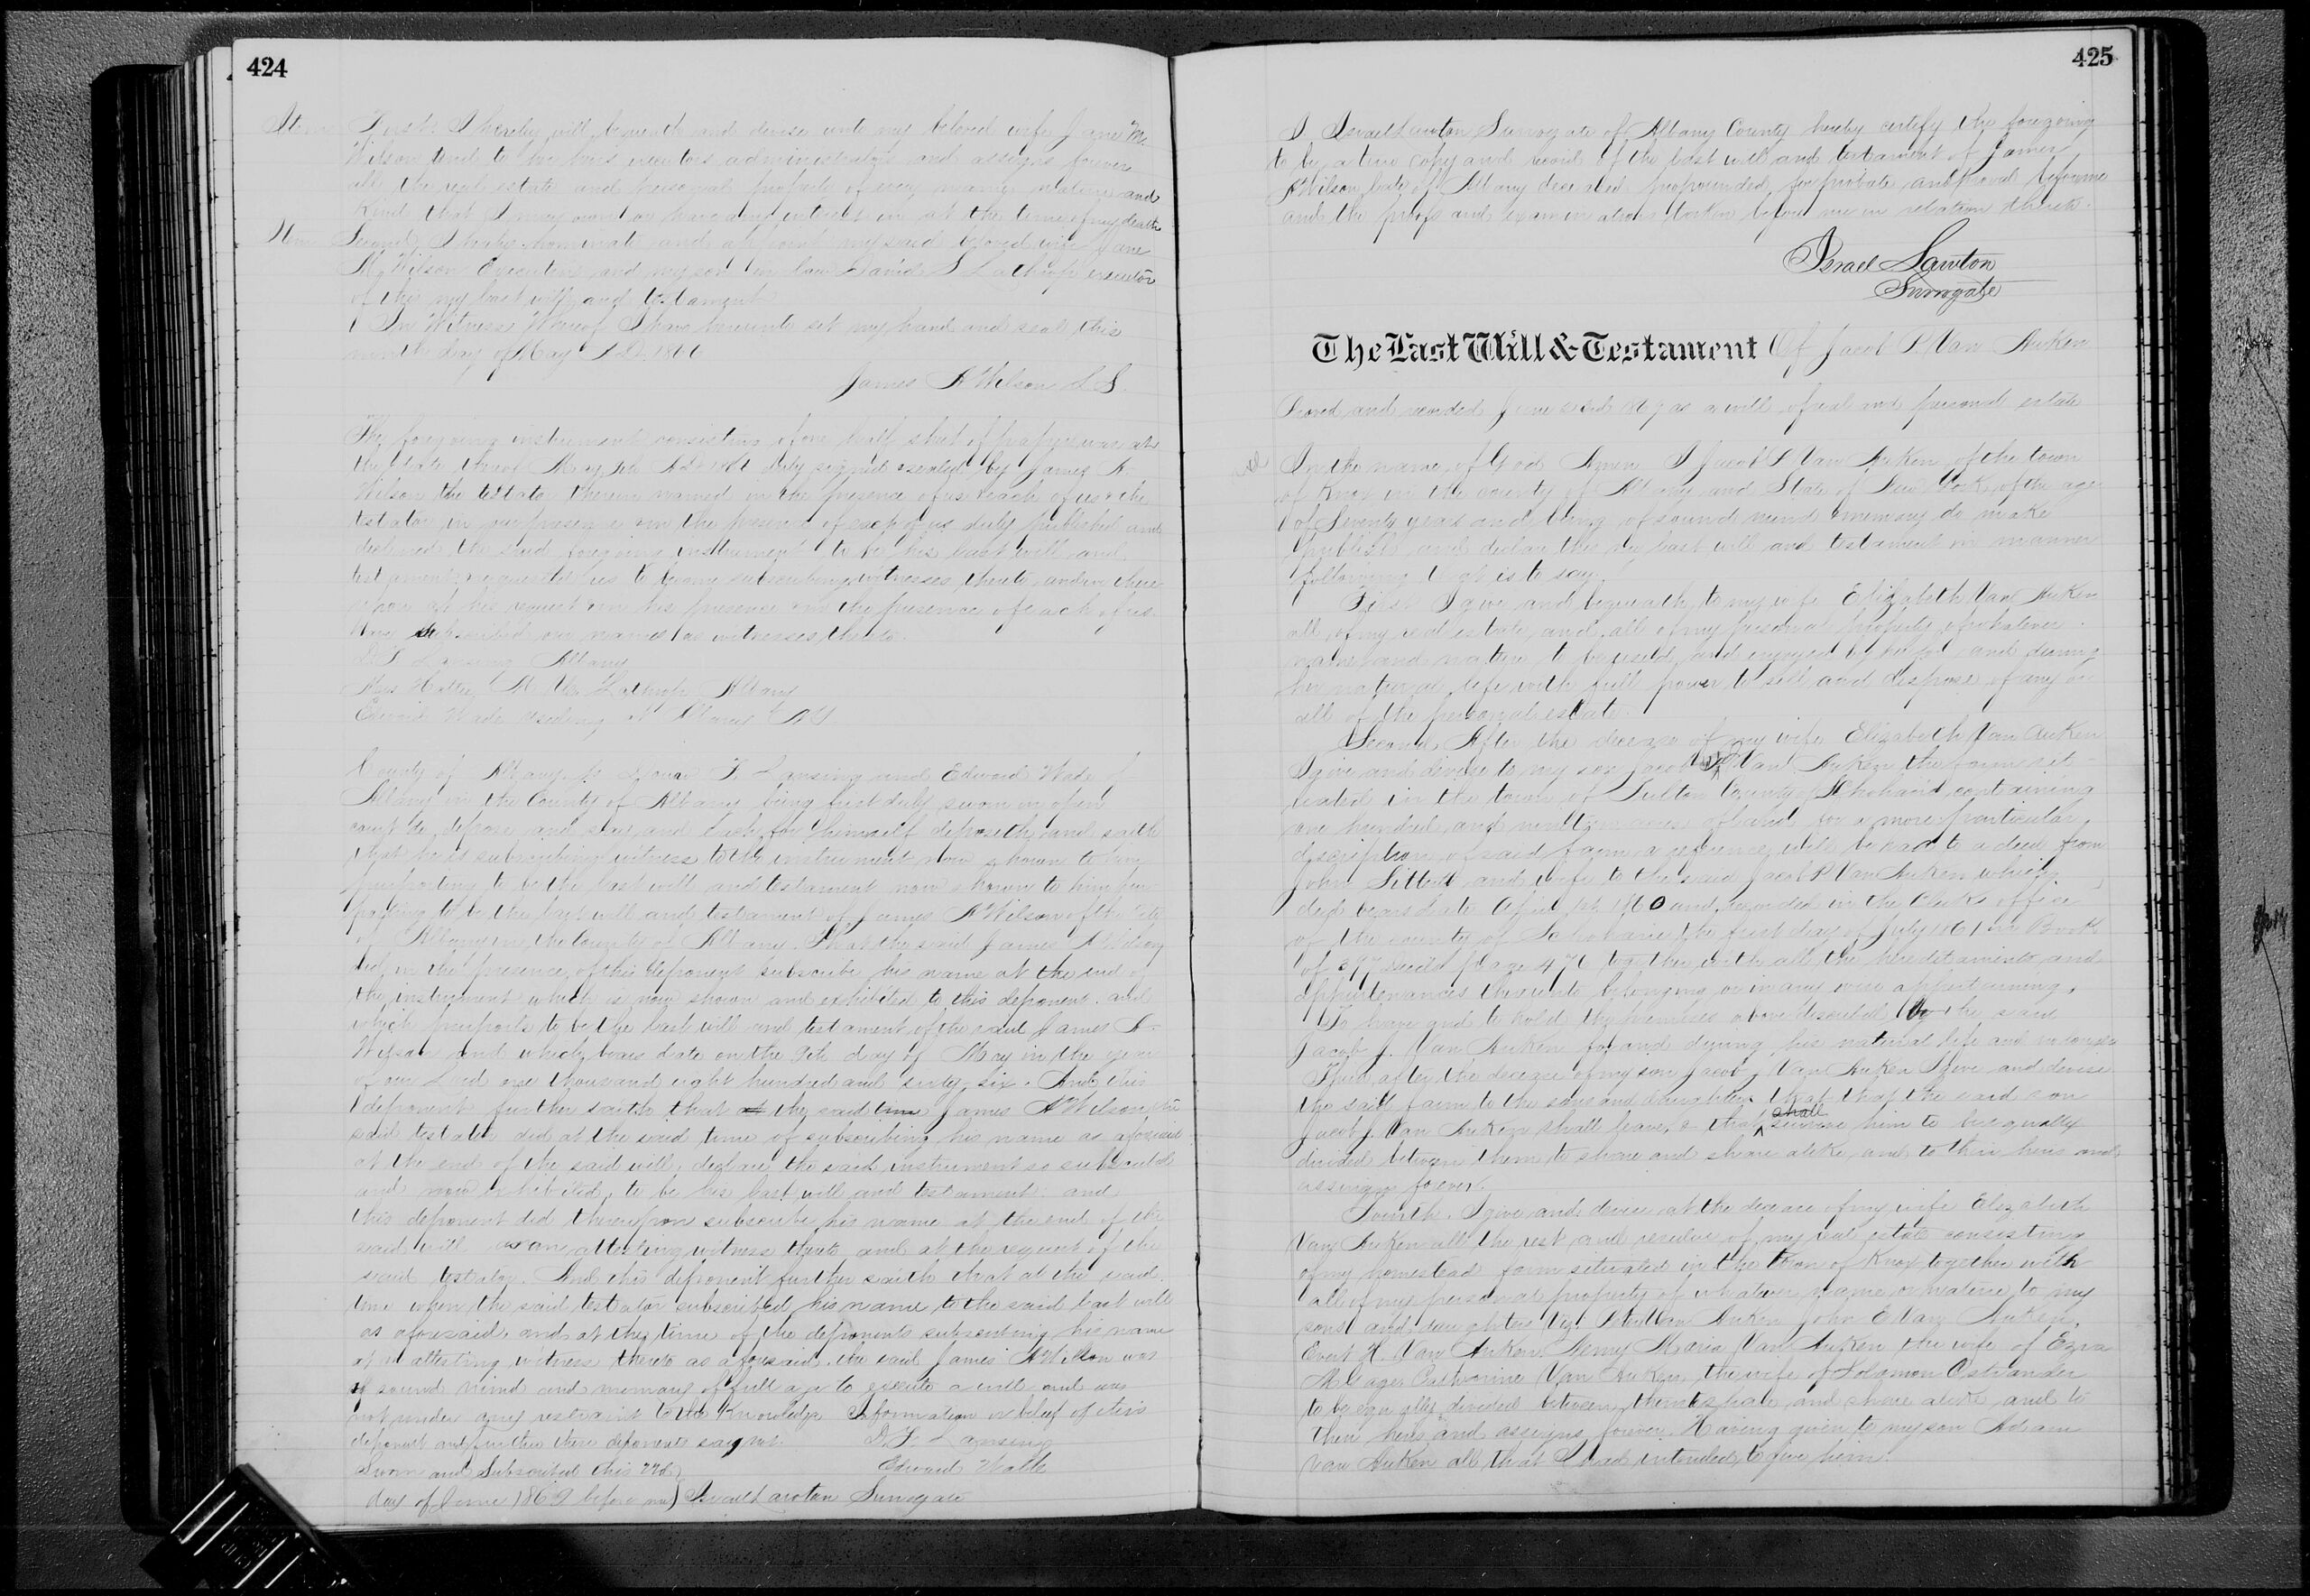 424
Item First. I hereby will, bequeath and devise unto my beloved wife Jane M.
Wilson and to her heirs executors administrators and assigns forever
all the real estate and personal property of every name nature and
kind that I may own or have any interest in at the time of my death
Item Second, I make nominate and appoint my said beloved wife Jane
M. Wilson Executrix and my son in law David S Lathrop executor
of this my last will and testament
In Witness Whereof I have hereunto set my hand and seal this
ninth day of May A.D. 1866
James A Wilson L S.
The foregoing instrument consisting of one half sheet of paper was at
the date thereof May 9th A.D. 1866 duly signed & sealed by James A
Wilson the testator therein named in the presence of us & each of us & the
testator in our presence & in the presence of each of us duly published and
declared the said foregoing instrument to be his last will and
testament & requested us to become subscribing witnesses thereto and we there
upon at his request & in his presence & in the presence of each of us
have subscribed our names as witnesses thereto.
Lansing Albany
Mrs Lathrop Albany
Edward Wade residing at Albany N Y
County of Albany ss Lansing and Edward Wade of
Albany in the County of Albany being first duly sworn in open
court do depose and say, and each for himself deposeth and saith
that he is subscribing witness to the instrument now shown to him
purporting to be the last will and testament now shown to him pur
porting to be the last will and testament of James A Wilson of the City
of Albany in the County of Albany. That the said James A Wilson
did in the presence of this deponent subscribe his name at the end of
the instrument which is now shown and exhibited to this deponent and
which purports to be the last will and testament of the said James A
Wilson and which bears date on the 9th day of May in the year
of our Lord one thousand eight hundred and sixty six. And this
deponent further saith that at the said time James A Wilson the
said testator did at the said time of subscribing his name as aforesaid
at the end of the said will, declare the said instrument so subscribed
and now exhibited, to be his last will and testament: and
this deponent did thereupon subscribe his name at the end of the
said will as an attesting witness thereto and at the request of the
said testator. And this deponent further saith that at the said
time when the said testator subscribed his name to the said last will
as aforesaid, and at the time of the deponents subscribing his name
as an attesting witness thereto as aforesaid, the said James A Wilson was
of sound mind and memory of full age to execute a will and was
not under any restraint to the knowledge information or belief of this
deponent and further these deponents say not. Lansing
Sworn and Subscribed this 22d Edward Wade
day of June 1869 before me) Israel Lawton Surrogate
425
I Israel Lawton Surrogate of Albany County hereby certify the foregoing
to be a true copy and record of the last will and testament of James
A Wilson late of Albany deceased propounded for probate and proved before me
and the proofs and examinations taken before me in relation thereto.
Israel Lawton
Surrogate
The Last Will & Testament Of Jacob P Van Auken
Proved and recorded June 1869 as a will of real and personal estate
In the name of God Amen I Jacob P Van Auken of the town
of Knox in the county of Albany and State of New York of the age
of Seventy years and being of sound mind & memory do make
publish and declare this my last will and testament in manner
following that is to say.
First I give and bequeath to my wife Elizabeth Van Auken
all of my real estate, and all of my personal property of whatever
name and nature to be used and enjoyed by her for and during
her natural life with full power to sell and dispose of any or
all of the personal estate.
Second. After the decease of my wife Elizabeth Van Auken
I give and devise to my son Jacob J Van Auken the farm sit
uated in the town of Fulton County of Schoharie containing
one hundred and acres of land for a more particular
description of said farm a reference to be had to a deed from
John and wife to the said Jacob P Van Auken which
deed bears date April 1st 1860 and recorded in the Clerks office
of the county of Schoharie the first day of July 1861 in Book
of deeds page 476 together with all the hereditaments and
appurtenances thereunto belonging or in any wise appertaining.
To have and to hold the premises above described to the said
Jacob J. Van Auken for and during his natural life and no longer
Third, after the decease of my son Jacob J Van Auken I give and devise
the said farm to the sons and daughters that that the said son
Jacob J. Van Auken shall leave, & that shall survive him to be equally
divided between them to share and share alike and to their heirs and
assigns forever.
Fourth. I give and devise at the decease of my wife Elizabeth
Van Auken all the rest and residue of my real estate consisting
of my homestead farm situated in the town of Knox together with
all of my personal property of whatever name or nature, to my
sons and daughters Viz. Peter Van Auken John E Van Auken,
Evert H. Van Auken Maria Van Auken the wife of Ezra
Catharine Van Auken the wife of Solomon Ostrander
to be equally divided between them to share and share alike and to
their heirs and assigns forever. Having given to my son Adam
Van Auken all that I had intended to give him.